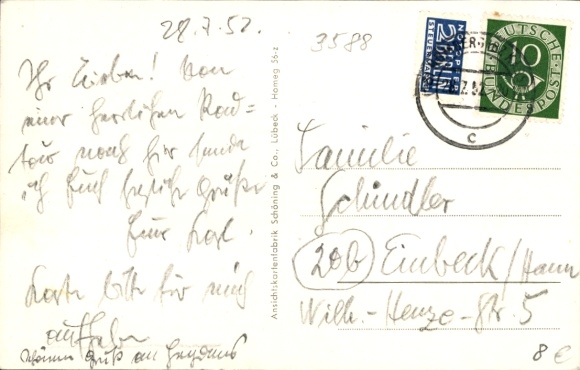 28.7.52.
3588
Ihr Lieben! Von
einer herrlichen Rad=
tour nach hier sende
ich Euch herzliche Grüße
Euer Karl.
Karte bitte für mich
aufheben
schönen Gruß an
Ansichtskartenfabrik Schöning & Co., Lübeck - Homeg 56-z
NOTOPFER
2 BERLIN
STEUERMARKE
DEUTSCHE POST
10
BUNDESPOST
c
Familie
Schindler
20b Einbeck/Hann
Wilh.-Henze-Str. 5
8 €